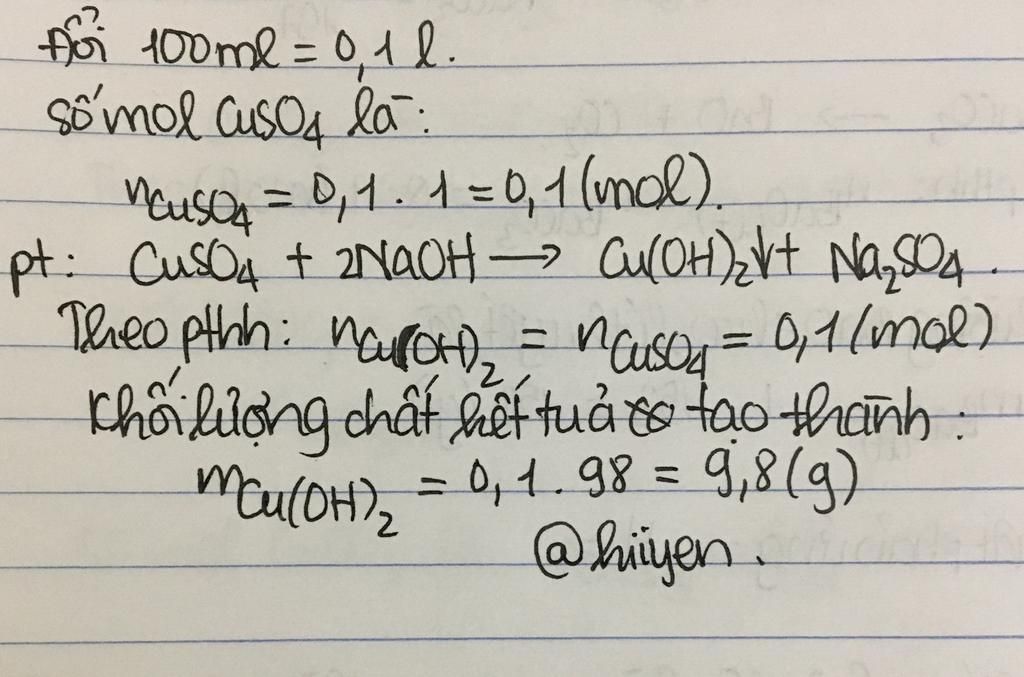 Đổi 100ml = 0,1 l.
số mol CuSO4 là:
nCuSO4 = 0,1 . 1 = 0,1 (mol).
pt: CuSO4 + 2NaOH → Cu(OH)2↓ + Na2SO4.
Theo pthh: nCu(OH)2 = nCuSO4 = 0,1 (mol)
Khối lượng chất kết tuả tạo thành:
mCu(OH)2 = 0,1 . 98 = 9,8 (g)
@hiiyen.